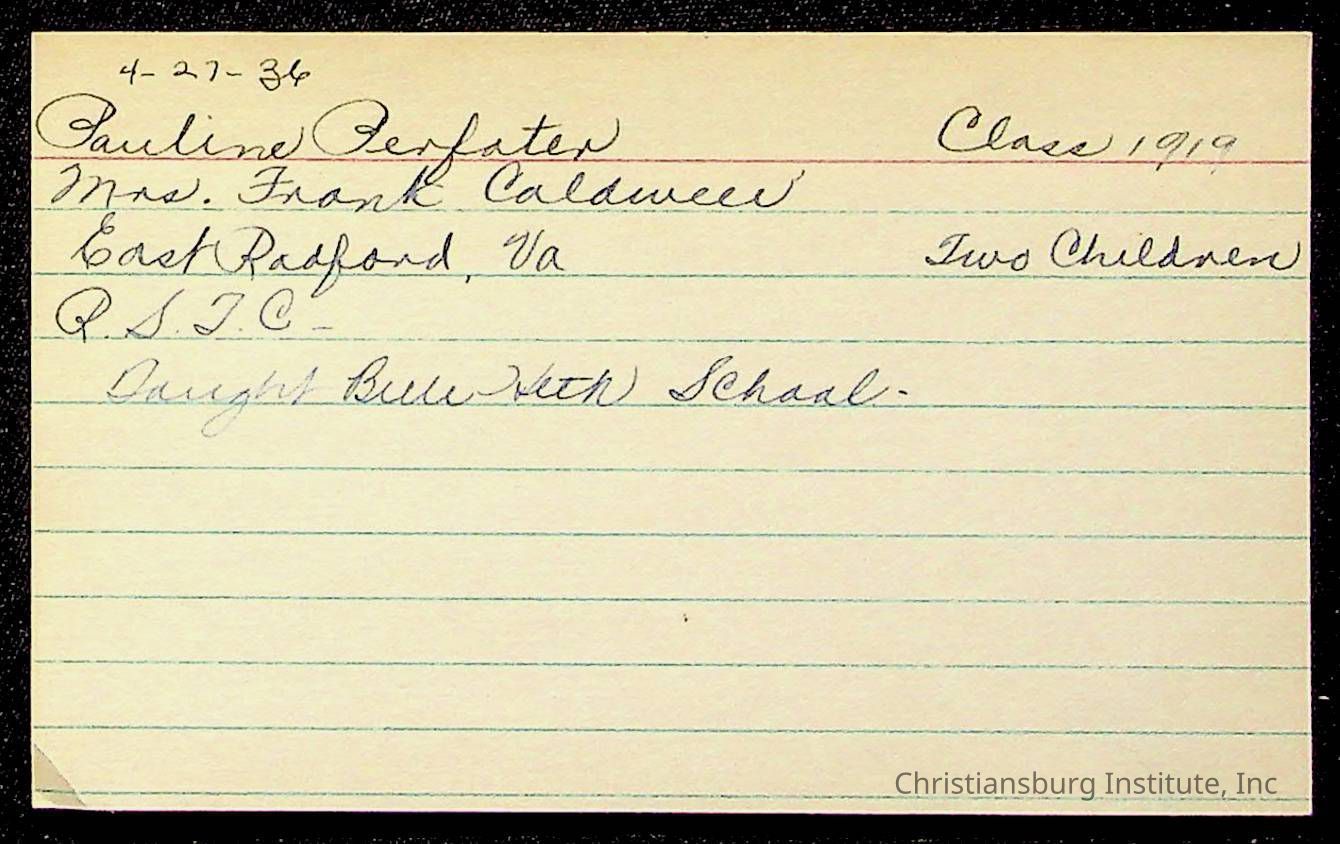 4-27-36
Pauline Perfater Class 1919
Mrs. Frank Caldwell
East Radford, Va Two Children
R.S.T.C -
Taught Belle Heth School -
Christiansburg Institute, Inc